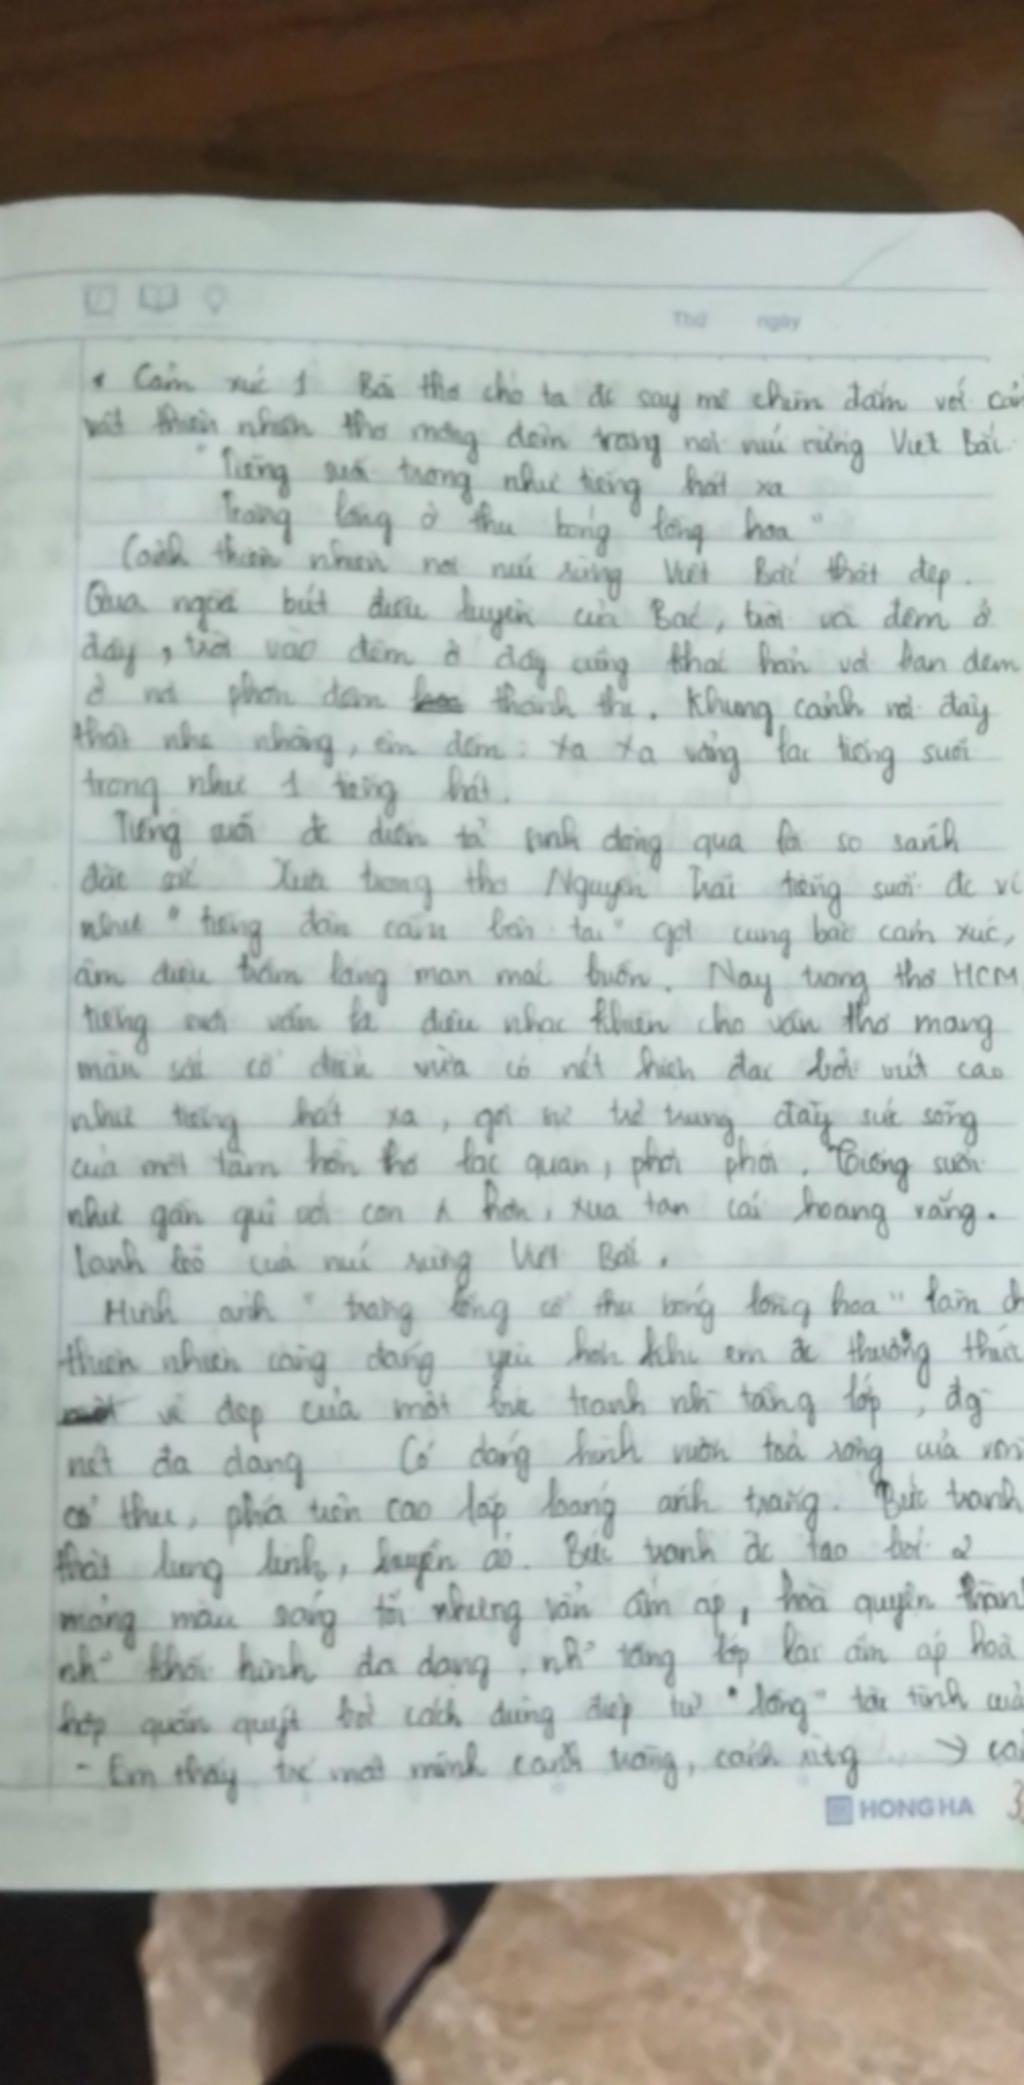 Thứ ngày
* Cảm xúc 1 Bài thơ cho ta đc say mê chìm đắm với cảnh
thiên nhiên thơ mộng đêm trăng nơi núi rừng Việt Bắc.
"Tiếng suối trong như tiếng hát xa
Trăng lồng cổ thụ bóng lồng hoa"
Cảnh thiên nhiên nơi núi rừng Việt Bắc thật đẹp.
Qua ngòi bút điêu luyện của Bác, trời và đêm ở
đây, trời vào đêm ở đây cũng khác hẳn với ban đêm
ở nơi phồn thành thị. Khung cảnh nơi đây
thật nhẹ nhàng, êm đềm: xa xa vẳng lại tiếng suối
trong như 1 tiếng hát.
Tiếng suối đc diễn tả sinh động qua lối so sánh
đặc sắc Xưa trong thơ Nguyễn Trãi tiếng suối đc ví
như "tiếng đàn cầm bên tai" gợi cung bậc cảm xúc,
âm điệu trầm lắng man mác buồn. Nay trong thơ HCM
tiếng suối vẫn là điệu nhạc khiến cho vần thơ mang
màu sắc cổ điển vừa có nét hiện đại bởi vút cao
như tiếng hát xa, gợi sự trẻ trung đầy sức sống
của một tâm hồn thơ lạc quan, phơi phới. Tiếng suối
như gần gũi với con hơn, xua tan cái hoang vắng.
lạnh lẽo của núi rừng Việt Bắc.
Hình ảnh "trăng lồng cổ thụ bóng lồng hoa" làm
thiên nhiên càng đáng yêu hơn khi em đc thưởng thức
vẻ đẹp của một bức tranh nh` tầng lớp, đg`
nét đa dạng Có dáng hình vươn toả rộng của
cổ thụ, phía trên cao lấp loáng ánh trăng. Bức tranh
thật lung linh, huyền ảo. Bức tranh đc tạo bởi 2
mảng màu sáng tối nhưng vẫn ấm áp, hoà quyện
nh` khối hình đa dạng, nh` tầng lớp lại ấm áp hoà
hợp quấn quýt bởi cách dùng điệp từ "lồng" tài tình của
- Em thấy mình cảnh trăng, cảnh rừng →
HONG HA